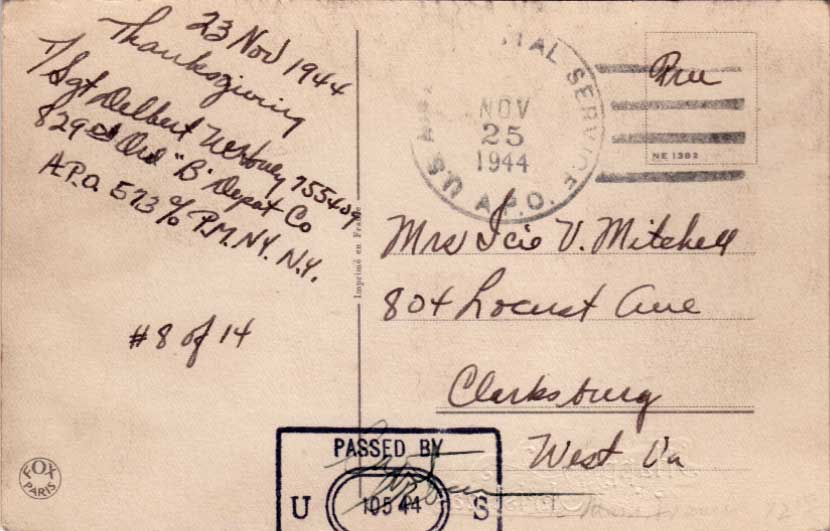 23 Nov 1944
Thanksgiving
T/Sgt Delbert 755409
829 Ord "B" Depot Co
A.P.O. 573 % P.M. N.Y. N.Y.
#8 of 14
FOX
PARIS
Imprimé en France
SERVICE
NOV
25
1944
U.S. A.P.O.
Free
NE 1382
Mrs Icie V. Mitchell
804 Locust Ave
Clarksburg
West Va
PASSED BY
U 10544 S